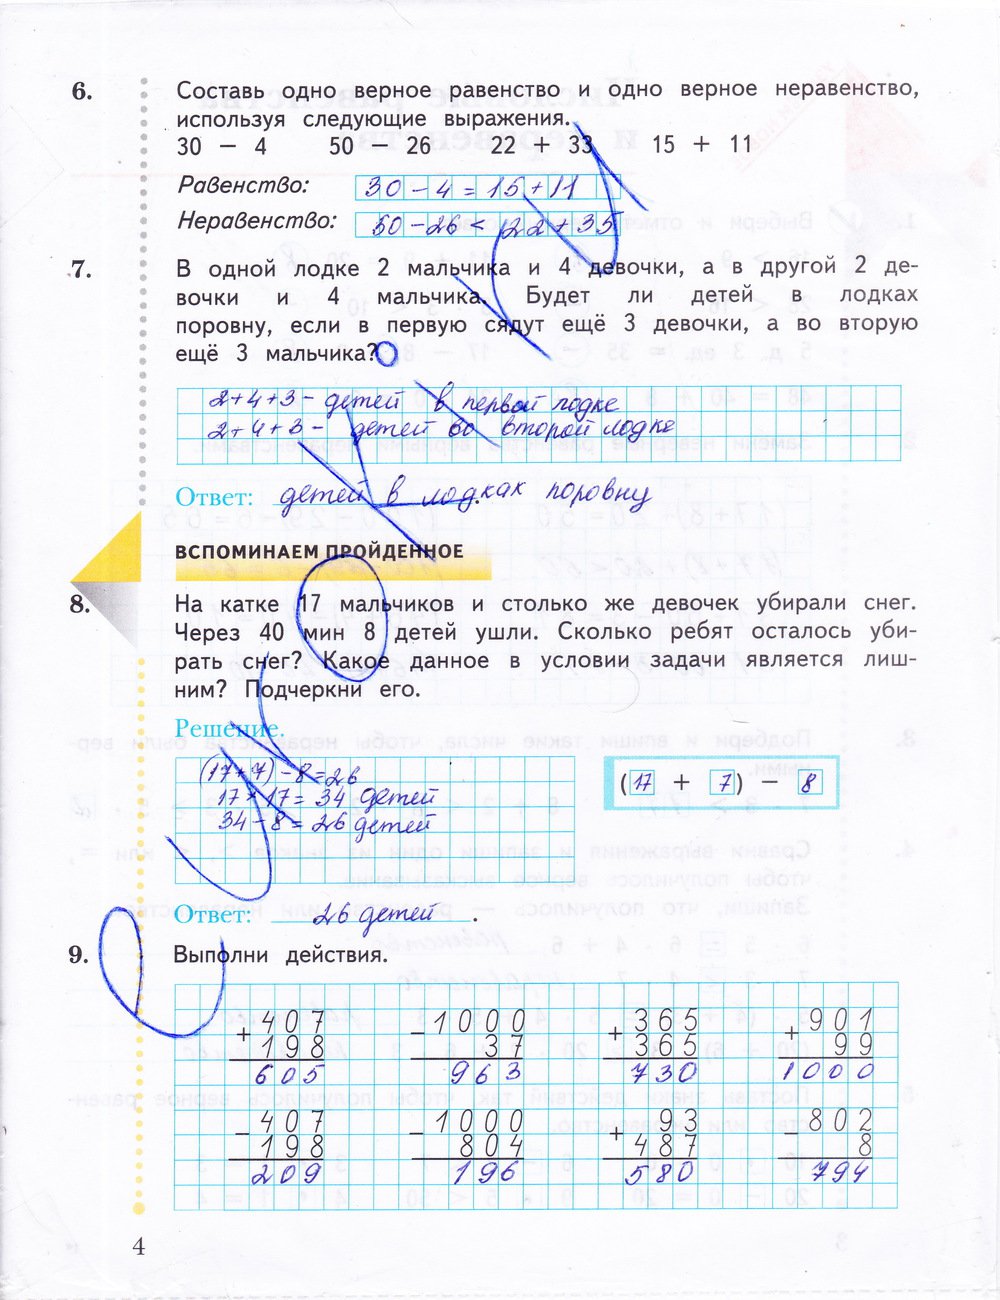 6. Составь одно верное равенство и одно верное неравенство,
используя следующие выражения.
30 − 4 50 − 26 22 + 33 15 + 11
Равенство: 30 − 4 = 15 + 11
Неравенство: 50 − 26 < 22 + 35
7. В одной лодке 2 мальчика и 4 девочки, а в другой 2 де-
вочки и 4 мальчика. Будет ли детей в лодках
поровну, если в первую сядут ещё 3 девочки, а во вторую
ещё 3 мальчика?
2+4+3 − детей в первой лодке
2+4+3 − детей во второй лодке
Ответ: детей в лодках поровну
ВСПОМИНАЕМ ПРОЙДЕННОЕ
8. На катке 17 мальчиков и столько же девочек убирали снег.
Через 40 мин 8 детей ушли. Сколько ребят осталось уби-
рать снег? Какое данное в условии задачи является лиш-
ним? Подчеркни его.
Решение.
(17+7) − 8 = 26
17+17 = 34 детей
34 − 8 = 26 детей
(17 + 7) − 8
Ответ: 26 детей.
9. Выполни действия.
+ 407 − 1000 + 365 + 901
198 37 365 99
605 963 730 1000
− 407 − 1000 + 93 − 802
198 804 487 8
209 196 580 794
4